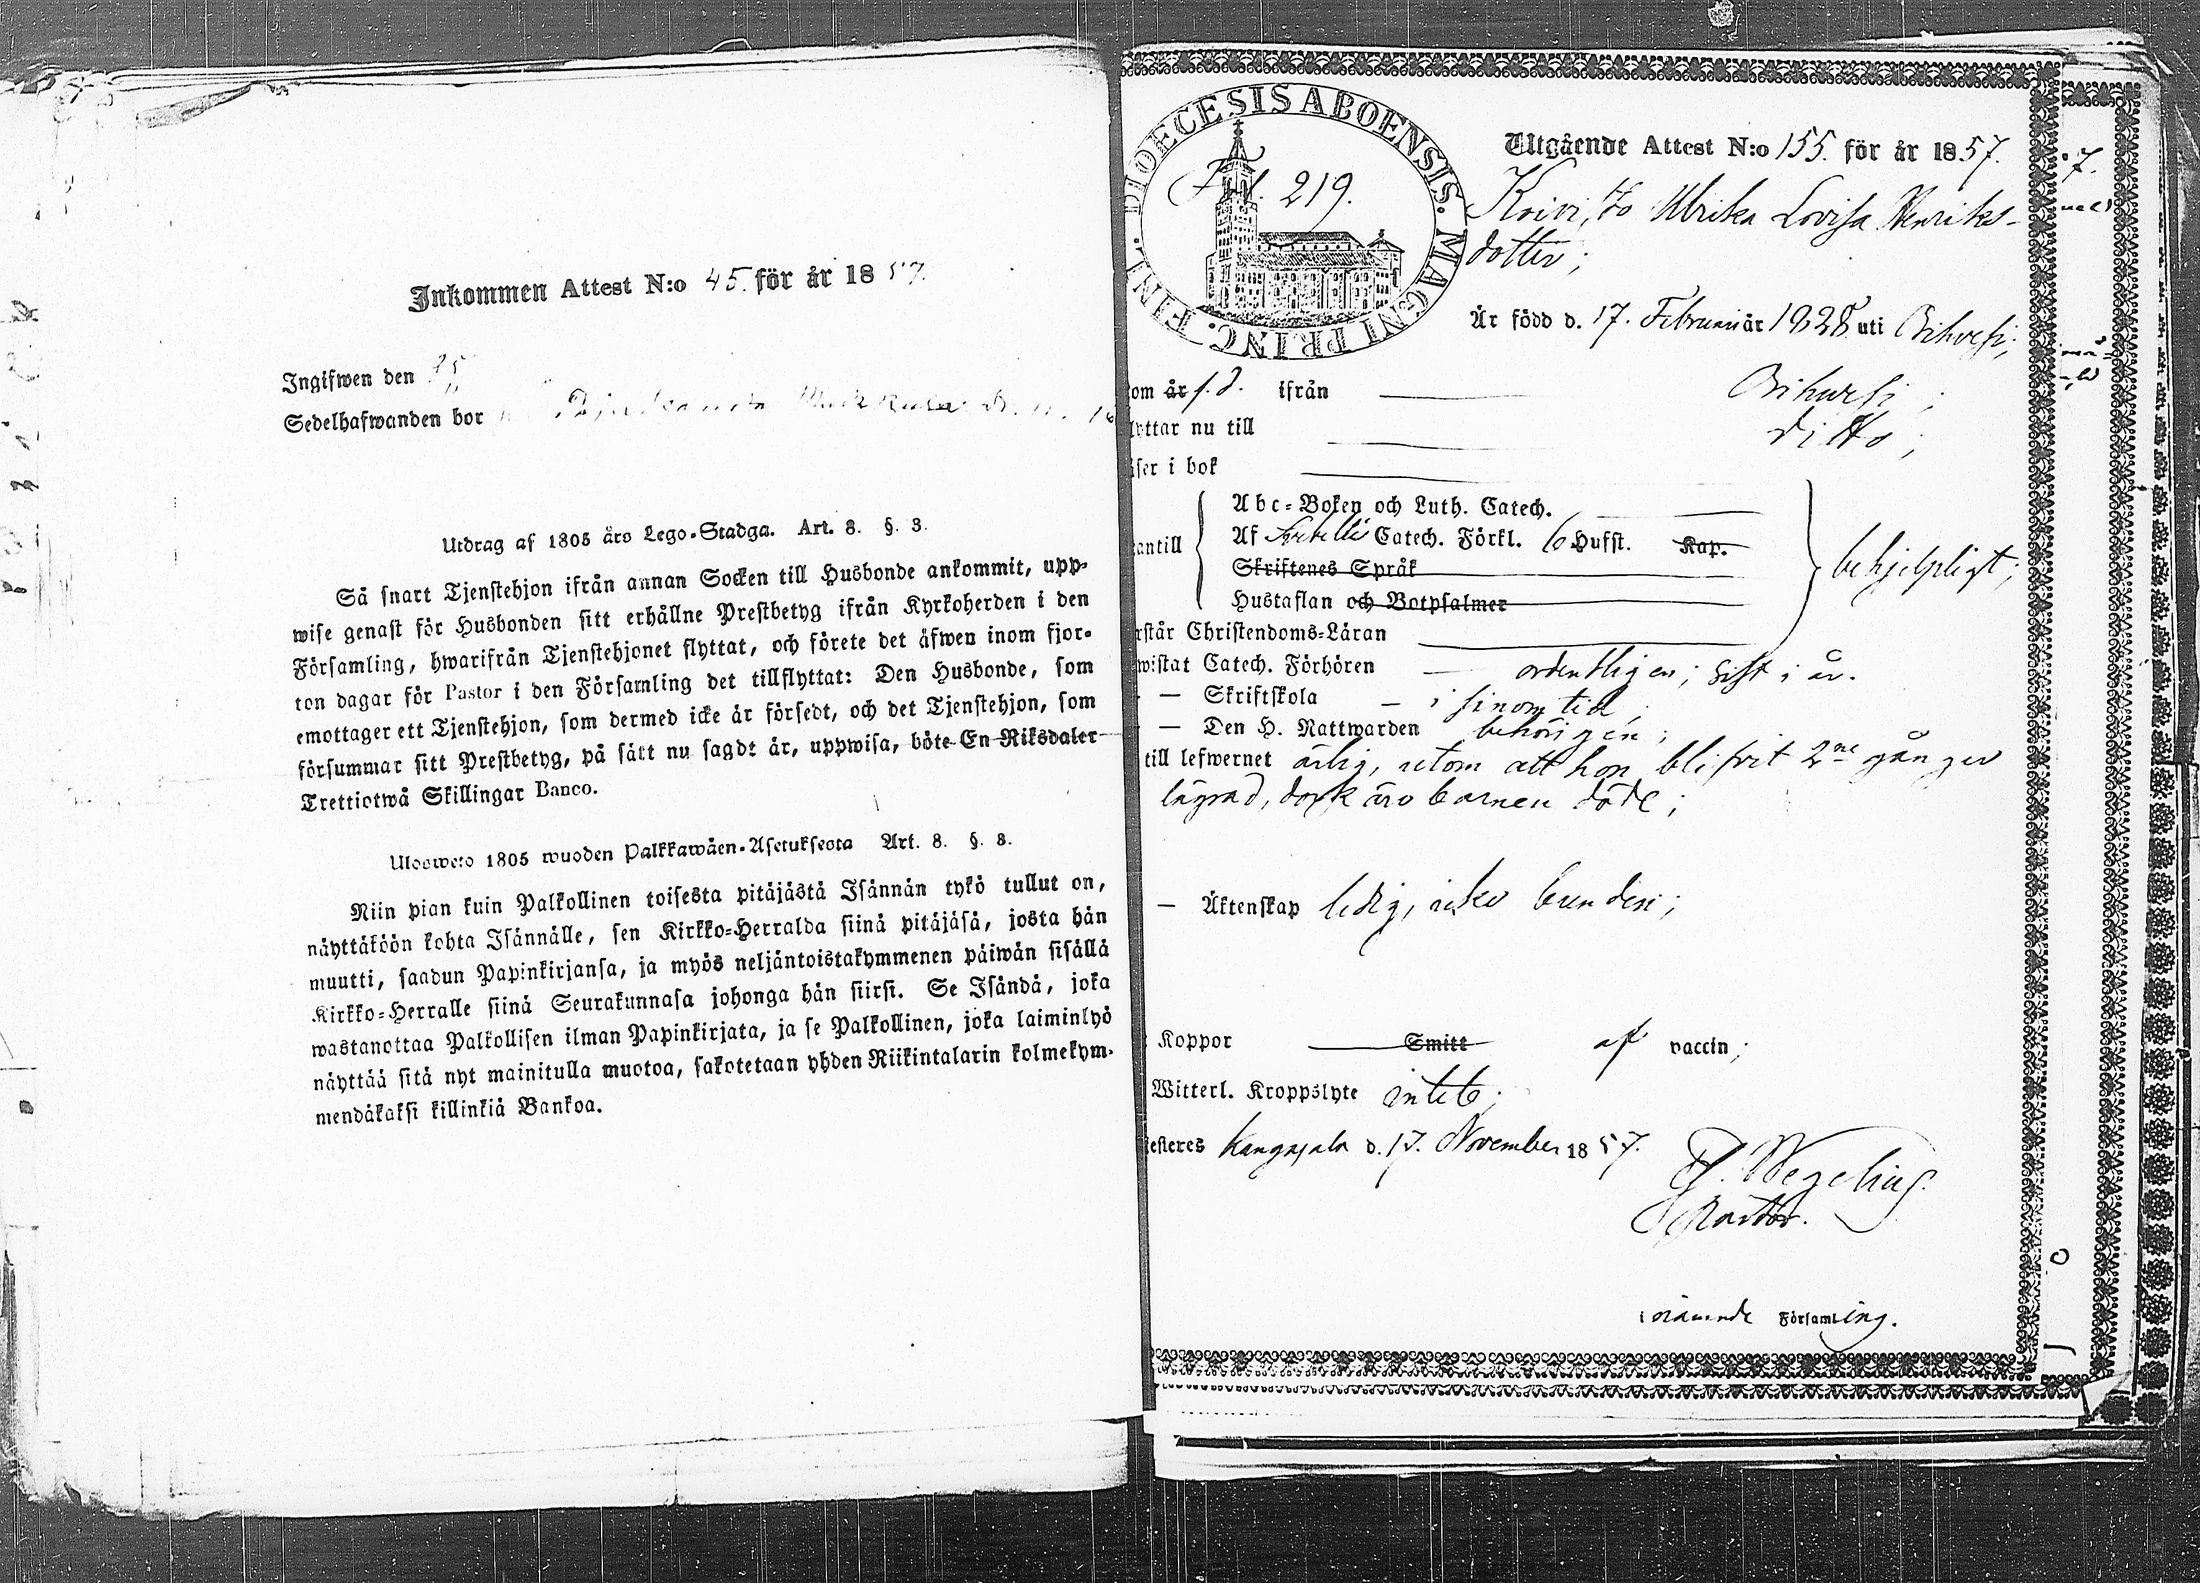 Inkommen Attest N:o 45. för år 1857.
Ingifwen den 25
Sedelhafwanden bor
Utdrag af 1805 års Lego-Stadga. Art. 8. §. 3.
Så snart Tjenstehjon ifrån annan Socken till Husbonde ankommit, upp-
wise genast för Husbonden sitt erhållne Prestbetyg ifrån Kyrkoherden i den
Församling, hwarifrån Tjenstehjonet flyttat, och förete det äfwen inom fjor-
ton dagar för Pastor i den Församling det tillflyttat: Den Husbonde, som
emottager ett Tjenstehjon, som dermed icke är försedt, och det Tjenstehjon, som
försummar sitt Prestbetyg, på sätt nu sagdt är, uppwisa, böte En Riksdaler
Trettiotwå Skillingar Banco.
Ulosweto 1805 wuoden Palkkawäen-Asetuksesta Art. 8. §. 3.
Niin pian kuin Palkollinen toisesta pitäjästä Isännän tykö tullut on,
näyttäköön kohta Isännälle, sen Kirkko-Herralda siinä pitäjäsä, josta hän
muutti, saadun Papinkirjansa, ja myös neljäntoistakymmenen päiwän sisällä
Kirkko-Herralle siinä Seurakunnasa johonga hän siirsi. Se Isändä, joka
wastanottaa Palkollisen ilman Papinkirjata, ja se Palkollinen, joka laiminlyö
näyttää sitä nyt mainitulla muotoa, sakotetaan yhden Riikintalarin kolmekym-
mendäkaksi killinkiä Bankoa.
DIOECESIS ABOENSIS. MAGNI PRINC. FINL.
Fol. 219.
Utgående Attest N:o 155. för år 1857.
Koivi, Ulrika Lovisa Henriks-
dotter;
Är född d. 17. Februari år 1828 uti Orihvesi;
om år f. d. ifrån Orihvesi;
yttar nu till ditto;
äser i bok
antill
Abc-Boken och Luth. Catech.
Af Svebelli Catech. Förkl. 6 Hufst. Kap.
Skriftenes Språk
Hustaflan och Botpsalmer
behjelpligt;
rstår Christendoms-Läran
wistat Catech. Förhören — ordentligen; sist i år.
— Skriftskola — i sinom tid;
— Den H. Nattwarden behörigen;
till lefwernet ärlig, utom att hon blifvit 2ne gånger
lägrad, dock äro barnen döde;
— Äktenskap ledig, icke bunden;
Koppor Smitt af vaccin;
Witterl. Kroppslyte intet;
esteres Kangasala d. 17. November 1857.
Wegelius.
Pastor.
i Församling.